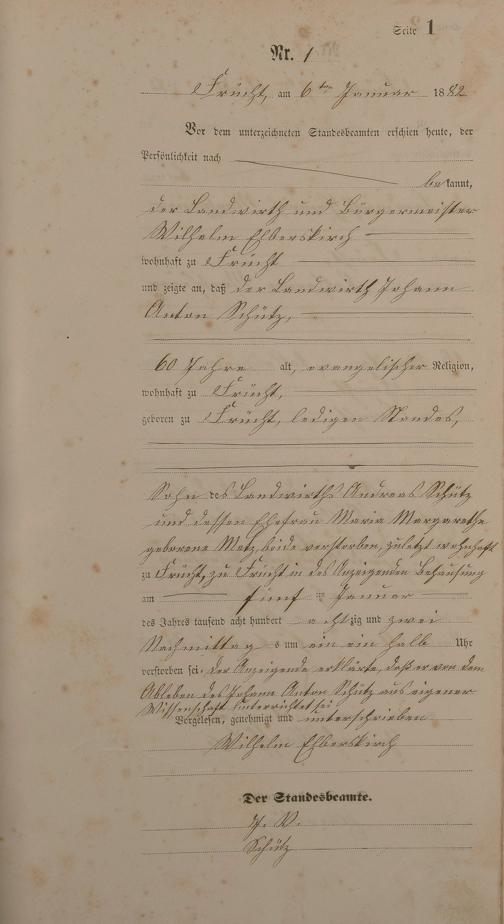 Seite 1
Nr. 1
Frücht, am 6ten Januar 1882
Vor dem unterzeichneten Standesbeamten erschien heute, der
Persönlichkeit nach
bekannt,
der Landwirth und Bürgermeister
Wilhelm Ehberskirch
wohnhaft zu Frücht
und zeigte an, daß der Landwirth Johann
Anton Schütz,
60 Jahre alt, evangelischer Religion,
wohnhaft zu Frücht,
geboren zu Frücht, ledigen Standes,
Sohn des Landwirths Andreas Schütz
und dessen Ehefrau Maria Margarethe
geborene Metz, beide verstorben, zuletzt wohnhaft
zu Frücht, zu Frücht in des Anzeigenden Behausung
am fünf ten Januar
des Jahres tausend acht hundert achtzig und zwei
Nachmittags um ein ein halb Uhr
verstorben sei. Der Anzeigende erklärte, daß er von dem
Ableben des Johann Anton Schütz aus eigener
Wissenschaft unterrichtet sei
Vorgelesen, genehmigt und unterschrieben
Wilhelm Ehberskirch
Der Standesbeamte.
J. V.
Schütz